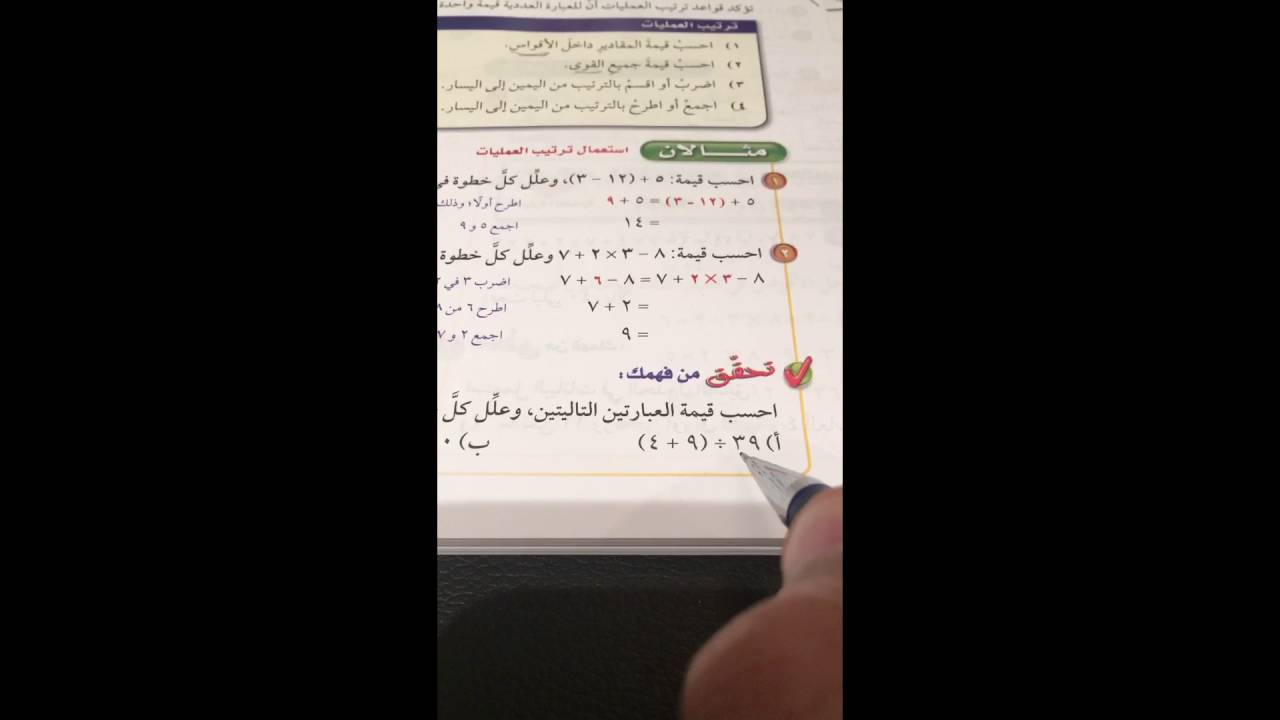 تؤكد قواعد ترتيب العمليات، أنّ للعبارة العددية قيمة واحدة
ترتيب العمليات
١) احسبْ قيمةَ المقاديرِ داخلَ الأقواسِ.
٢) احسبْ قيمةَ جميعِ القوى.
٣) اضربْ أو اقسمْ بالترتيب من اليمين إلى اليسار.
٤) اجمعْ أو اطرحْ بالترتيب من اليمين إلى اليسار.
مثالان استعمال ترتيب العمليات
١ احسب قيمة: ٥ + (١٢ − ٣)، وعلّل كلَّ خطوة في
٥ + (١٢ − ٣) = ٥ + ٩ اطرح أولًا؛ وذلك
= ١٤ اجمع ٥ و ٩
٢ احسب قيمة: ٨ − ٣ × ٢ + ٧ وعلّل كلَّ خطوة
٨ − ٣ × ٢ + ٧ = ٨ − ٦ + ٧ اضرب ٣ في ٢
= ٢ + ٧ اطرح ٦ من ٨
= ٩ اجمع ٢ و ٧
تحقّق من فهمك:
احسب قيمة العبارتين التاليتين، وعلّل كلَّ
أ) ٣٩ ÷ (٩ + ٤) ب) ٠